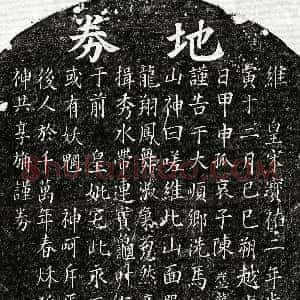 地劵
維 皇宋寶祐二年歲
寅十二月己巳朔越
日甲申孤哀子陳
謹告于大順鄉洗馬
山神曰嗟維此山面
龍翔鳳舞 宛然
揖秀水帶連 龜叶
于前 皇妣宅此永
或有妖魍 神呵斥
後人於千萬年春秋
神共享 謹劵